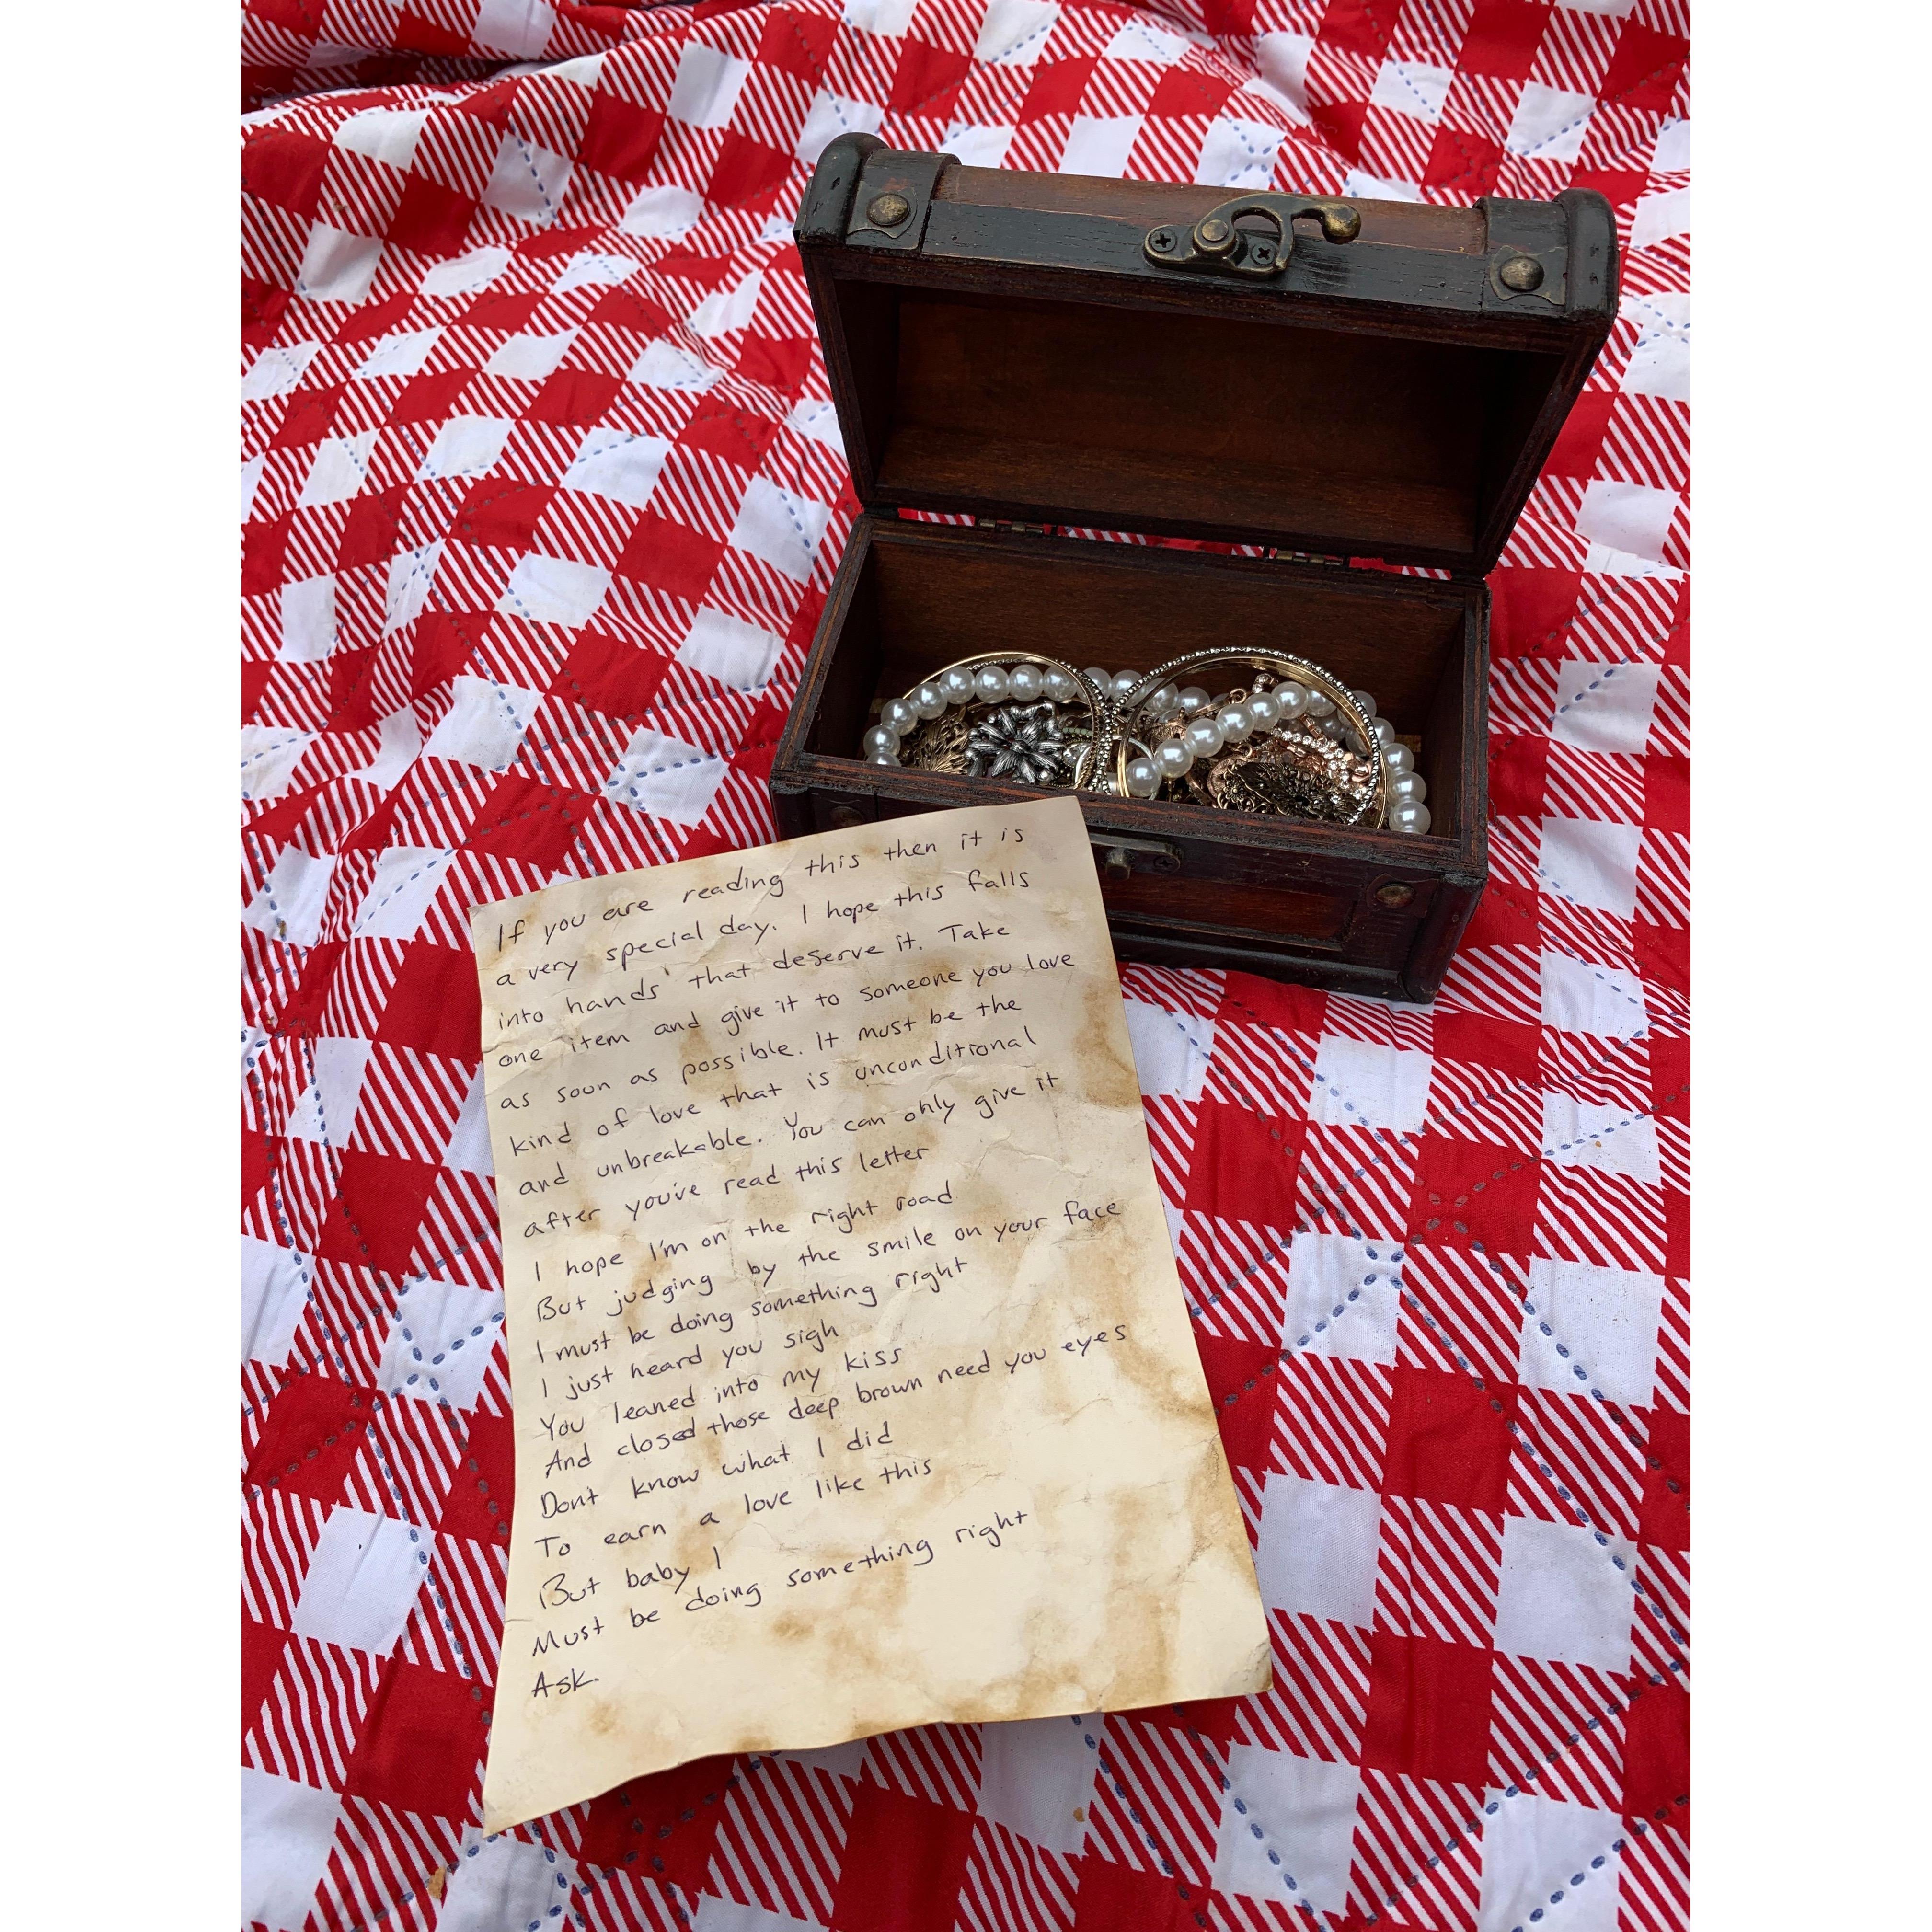 If you are reading this then it is
a very special day. I hope this falls
into hands that deserve it. Take
one item and give it to someone you love
as soon as possible. It must be the
kind of love that is unconditional
and unbreakable. You can only give it
after you've read this letter
I hope I'm on the right road
But judging by the smile on your face
I must be doing something right
I just heard you sigh
You leaned into my kiss
And closed those deep brown need you eyes
Dont know what I did
To earn a love like this
But baby I
Must be doing something right
Ask.